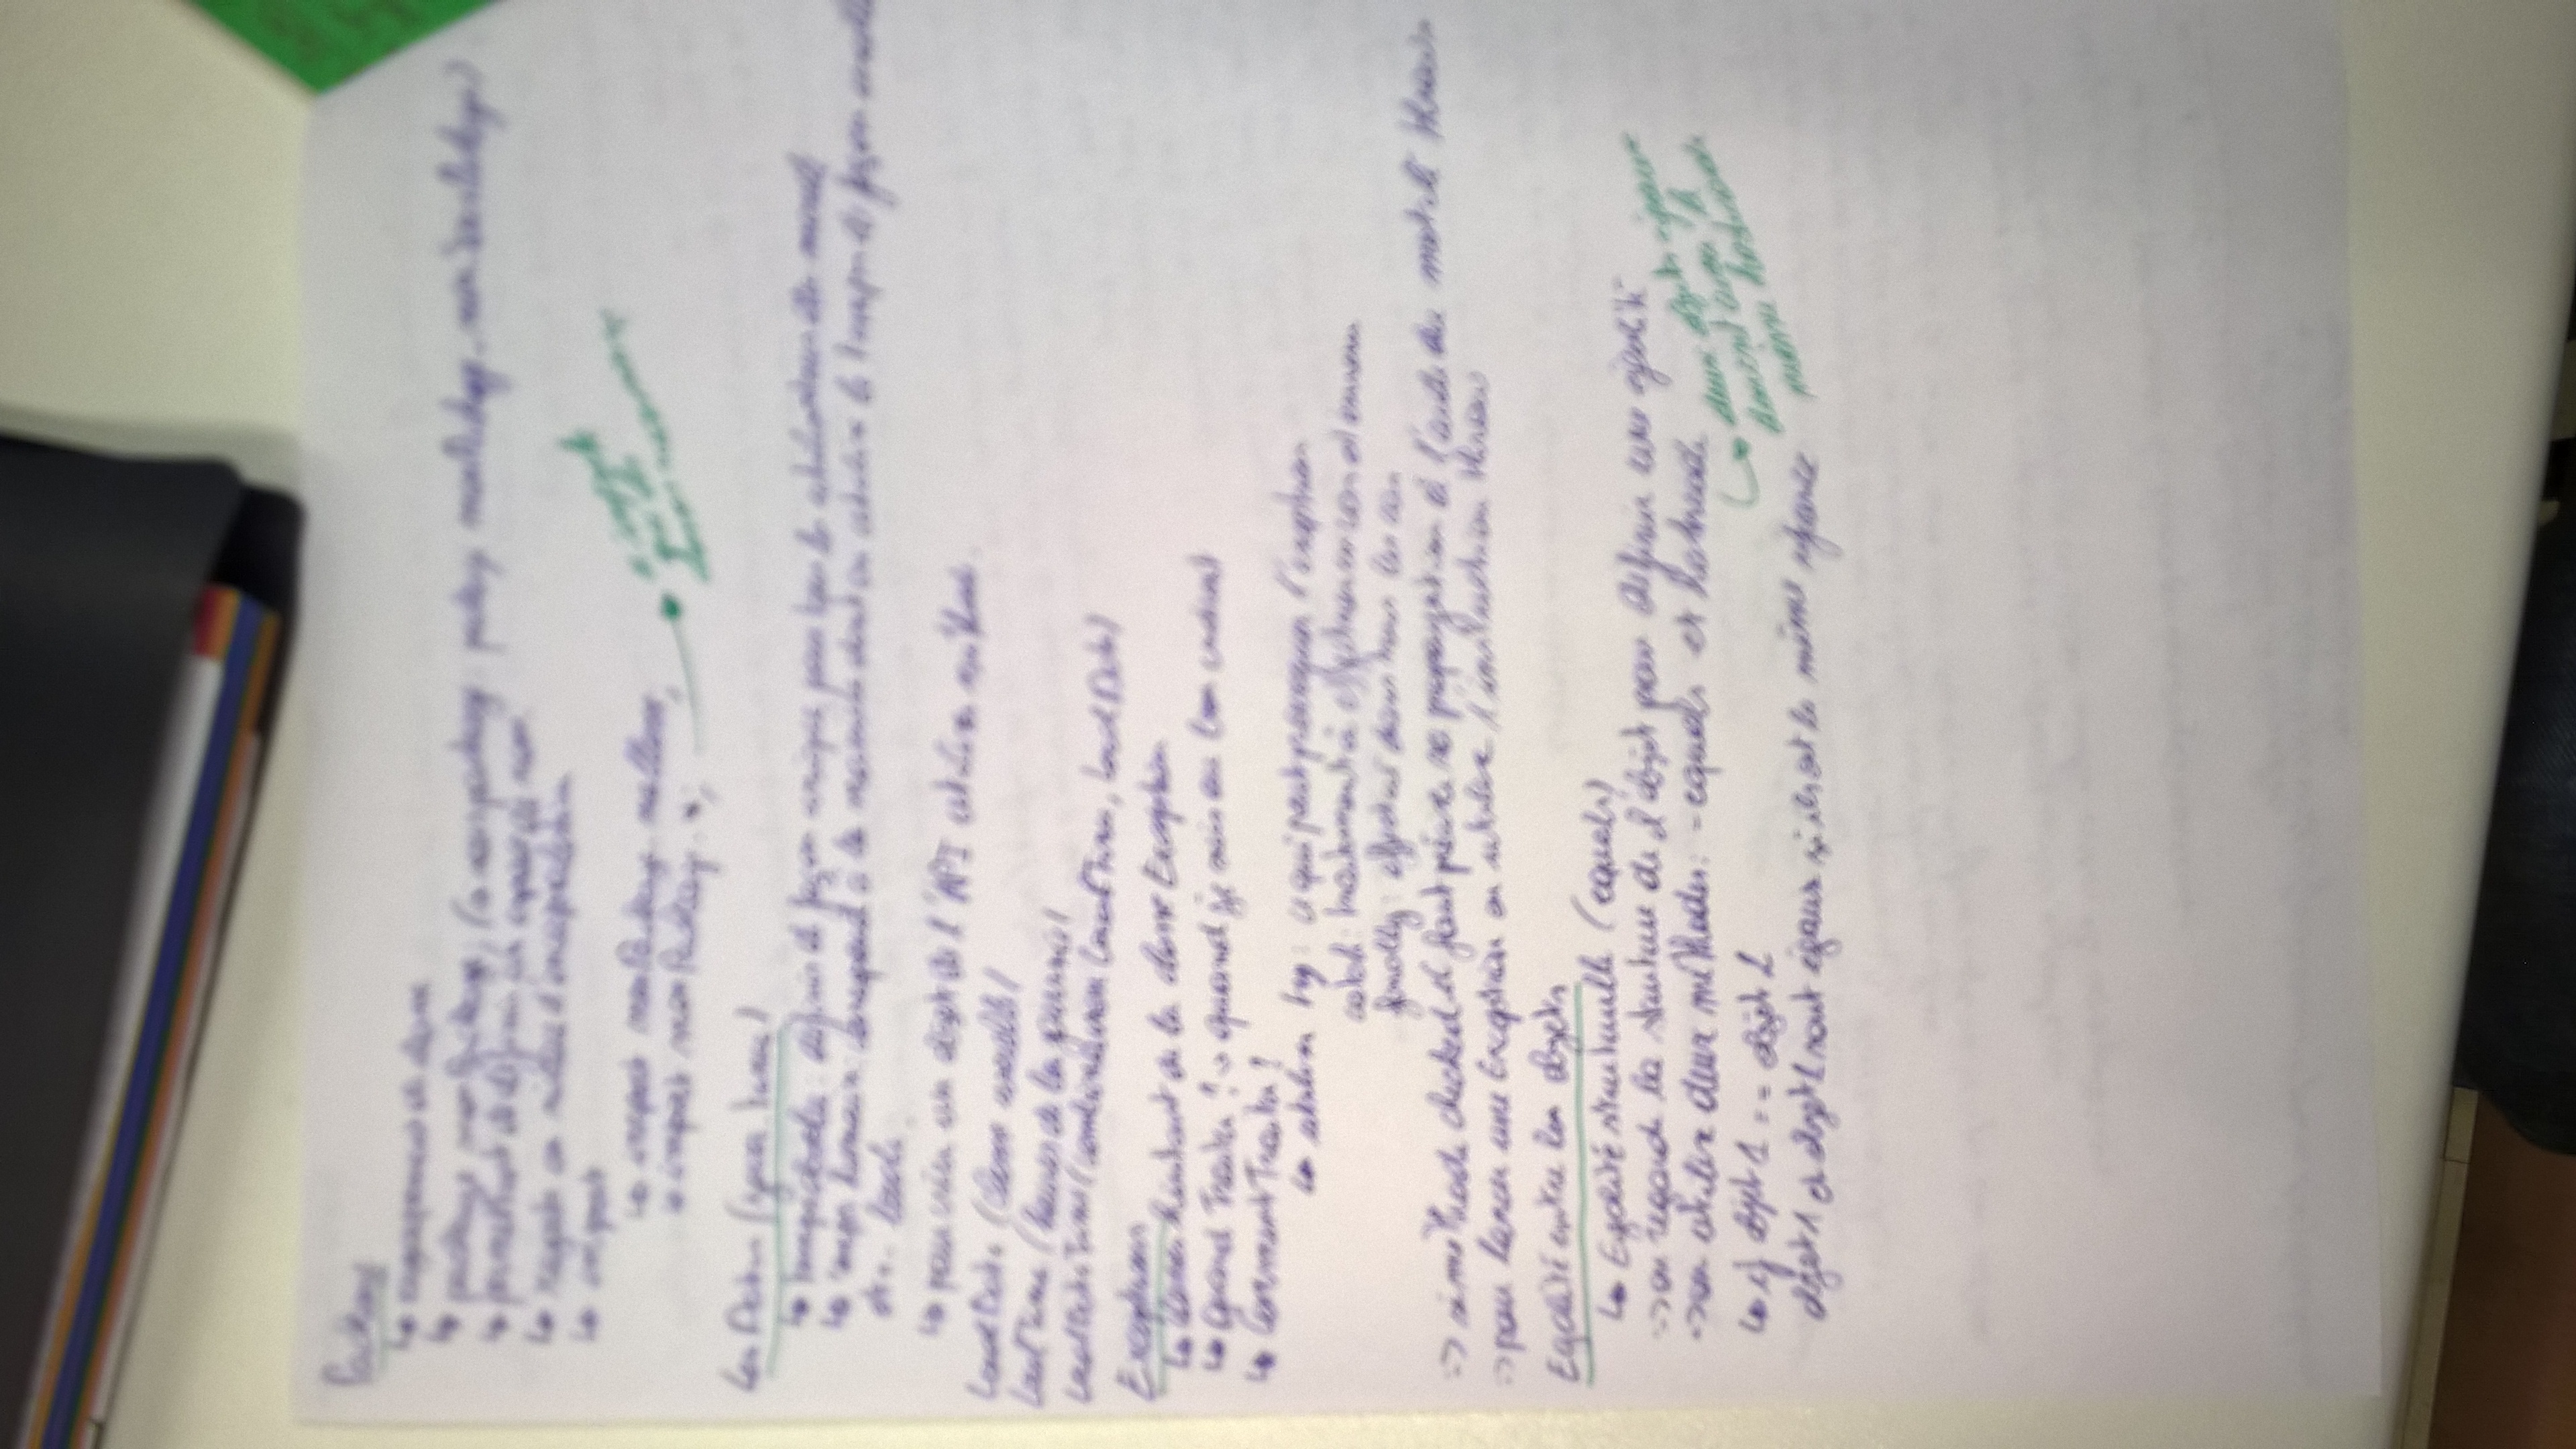 Package
↳ regroupement de classe
↳ package monPackage; (sous package: package monPackage.monSousPackage)
↳ permettent de définir un espace de nom
↳ rajoute un niveau d'encapsulation
↳ import
↳ import monPackage.maClasse;
↳ import monPackage.*;
n'importe que les classes nécessaires
Les Dates (java.time)
↳ : définir de façon unique pour tous les
↳ temps humain: correspond à la manière dont on utilise le temps de façon
locale
↳ pour créer un objet de l'API utiliser méthode
LocalDate (classe
LocalTime (heures de la journée)
LocalDateTime (combinaison LocalTime, LocalDate)
Exceptions
↳ classes héritant de la classe Exception
↳ Quand Traiter? → quand je suis au bon endroit
↳ Comment Traiter?
↳ utiliser try: ce qui peut provoquer l'exception
catch: traitement à effectuer en cas d'erreur
finally: effectué dans tous les cas
=> si méthode checked il faut prévoir sa propagation à l'aide du mot clé throws
=> pour lancer une Exception on utilise l'instruction throw
Egalité entre les objets
↳ Egalité structurelle (equals)
=> on regarde la structure de l'objet pour définir une égalité
=> on utilise deux méthodes: - equals et hashcode
↳ deux objets égaux doivent avoir le même hashcode
↳ if objet 1 == objet 2
objet 1 et objet 2 sont égaux si ils ont la même référence